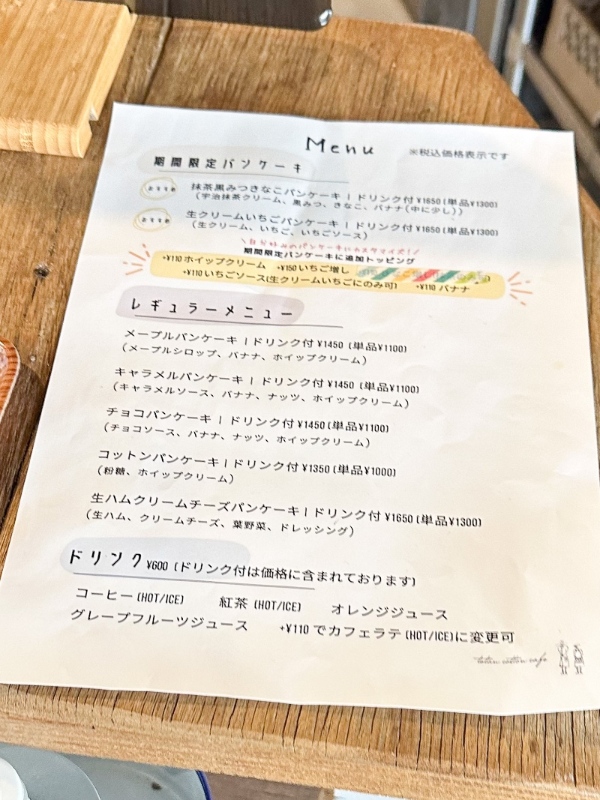 Menu
※税込価格表示です
期間限定パンケーキ
おすすめ
抹茶黒みつきなこパンケーキ | ドリンク付 ¥1650 (単品¥1300)
(宇治抹茶クリーム、黒みつ、きなこ、バナナ(中に少し))
おすすめ
生クリームいちごパンケーキ | ドリンク付 ¥1650 (単品¥1300)
(生クリーム、いちご、いちごソース)
\自分好みのパンケーキにカスタマイズ!/
期間限定パンケーキに追加トッピング
+¥110 ホイップクリーム +¥150 いちご増し
+¥110 いちごソース(生クリームいちごにのみ可) +¥110 バナナ
レギュラーメニュー
メープルパンケーキ | ドリンク付 ¥1450 (単品¥1100)
(メープルシロップ、バナナ、ホイップクリーム)
キャラメルパンケーキ | ドリンク付 ¥1450 (単品¥1100)
(キャラメルソース、バナナ、ナッツ、ホイップクリーム)
チョコパンケーキ | ドリンク付 ¥1450 (単品¥1100)
(チョコソース、バナナ、ナッツ、ホイップクリーム)
コットンパンケーキ | ドリンク付 ¥1350 (単品¥1000)
(粉糖、ホイップクリーム)
生ハムクリームチーズパンケーキ | ドリンク付 ¥1650 (単品¥1300)
(生ハム、クリームチーズ、葉野菜、ドレッシング)
ドリンク ¥600 (ドリンク付は価格に含まれております)
コーヒー (HOT/ICE) 紅茶 (HOT/ICE) オレンジジュース
グレープフルーツジュース +¥110 でカフェラテ (HOT/ICE)に変更可